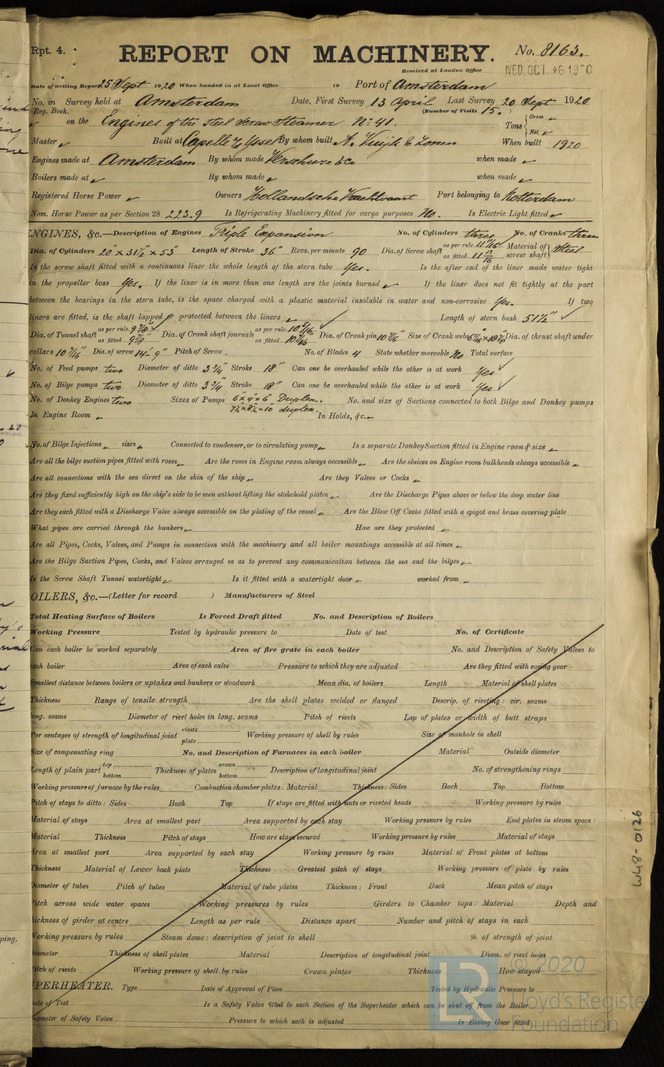 Rpt. 4.
REPORT ON MACHINERY.
No. 8163.
Received at London Office
WED. OCT. 6 1920
Date of writing Report 25 Sept 1920 When handed in at Local Office 19 Port of Amsterdam
No. in Survey held at Amsterdam Date, First Survey 13 April Last Survey 20 Sept 1920
Reg. Book. (Number of Visits 15.
on the Engines of the steel Screw Steamer No 41. Tons Gross Net
Master Built at Capelle a/d Ysel By whom built A. Vuijk & Zonen When built 1920
Engines made at Amsterdam By whom made Verschure & Co when made
Boilers made at By whom made when made
Registered Horse Power Owners Hollandsche Vrachtvaart Port belonging to Rotterdam
Nom. Horse Power as per Section 28 223.9 Is Refrigerating Machinery fitted for cargo purposes No. Is Electric Light fitted
ENGINES, &c.—Description of Engines Triple Expansion No. of Cylinders three No. of Cranks three
Dia. of Cylinders 20" x 31½ x 53" Length of Stroke 36" Revs. per minute 90 Dia. of Screw shaft as per rule as fitted Material of screw shaft Steel
Is the screw shaft fitted with a continuous liner the whole length of the stern tube Yes. Is the after end of the liner made water tight
in the propeller boss Yes. If the liner is in more than one length are the joints burned If the liner does not fit tightly at the part
between the bearings in the stern tube, is the space charged with a plastic material insoluble in water and non-corrosive Yes. If two
liners are fitted, is the shaft lapped or protected between the liners Length of stern bush 51½"
Dia. of Tunnel shaft as per rule as fitted Dia. of Crank shaft journals as per rule as fitted Dia. of Crank pin Size of Crank webs Dia. of thrust shaft under
collars Dia. of screw 14'-9" Pitch of Screw No. of Blades 4 State whether moveable No Total surface
No. of Feed pumps two Diameter of ditto 3¼" Stroke 18" Can one be overhauled while the other is at work Yes
No. of Bilge pumps two Diameter of ditto 3¼" Stroke 18" Can one be overhauled while the other is at work Yes
No. of Donkey Engines two Sizes of Pumps 6 x 4 x 6 Duplex. No. and size of Suctions connected to both Bilge and Donkey pumps
7½ x 8½ x 10 duplex.
In Engine Room In Holds, &c.
No. of Bilge Injections sizes Connected to condenser, or to circulating pump Is a separate Donkey Suction fitted in Engine room & size
Are all the bilge suction pipes fitted with roses Are the roses in Engine room always accessible Are the sluices on Engine room bulkheads always accessible
Are all connections with the sea direct on the skin of the ship Are they Valves or Cocks
Are they fixed sufficiently high on the ship's side to be seen without lifting the stokehold plates Are the Discharge Pipes above or below the deep water line
Are they each fitted with a Discharge Valve always accessible on the plating of the vessel Are the Blow Off Cocks fitted with a spigot and brass covering plate
What pipes are carried through the bunkers How are they protected
Are all Pipes, Cocks, Valves, and Pumps in connection with the machinery and all boiler mountings accessible at all times
Are the Bilge Suction Pipes, Cocks, and Valves arranged so as to prevent any communication between the sea and the bilges
Is the Screw Shaft Tunnel watertight Is it fitted with a watertight door worked from
OILERS, &c.—(Letter for record ) Manufacturers of Steel
Total Heating Surface of Boilers Is Forced Draft fitted No. and Description of Boilers
Working Pressure Tested by hydraulic pressure to Date of test No. of Certificate
Can each boiler be worked separately Area of fire grate in each boiler No. and Description of Safety Valves to
each boiler Area of each valve Pressure to which they are adjusted Are they fitted with easing gear
Smallest distance between boilers or uptakes and bunkers or woodwork Mean dia. of boilers Length Material of shell plates
Thickness Range of tensile strength Are the shell plates welded or flanged Descrip. of riveting: cir. seams
long. seams Diameter of rivet holes in long. seams Pitch of rivets Lap of plates or width of butt straps
Per centages of strength of longitudinal joint rivets plate Working pressure of shell by rules Size of manhole in shell
Size of compensating ring No. and Description of Furnaces in each boiler Material Outside diameter
Length of plain part top bottom Thickness of plates crown bottom Description of longitudinal joint No. of strengthening rings
Working pressure of furnace by the rules Combustion chamber plates: Material Thickness: Sides Back Top Bottom
Pitch of stays to ditto: Sides Back Top If stays are fitted with nuts or riveted heads Working pressure by rules
Material of stays Area at smallest part Area supported by each stay Working pressure by rules End plates in steam space:
Material Thickness Pitch of stays How are stays secured Working pressure by rules Material of stays
Area at smallest part Area supported by each stay Working pressure by rules Material of Front plates at bottom
Thickness Material of Lower back plate Thickness Greatest pitch of stays Working pressure of plate by rules
Diameter of tubes Pitch of tubes Material of tube plates Thickness: Front Back Mean pitch of stays
Pitch across wide water spaces Working pressures by rules Girders to Chamber tops: Material Depth and
thickness of girder at centre Length as per rule Distance apart Number and pitch of stays in each
Working pressure by rules Steam dome: description of joint to shell % of strength of joint
Diameter Thickness of shell plates Material Description of longitudinal joint Diam. of rivet holes
Pitch of rivets Working pressure of shell by rules Crown plates Thickness How stayed
PERHEATER. Type Date of Approval of Plan Tested by Hydraulic Pressure to
Date of Test Is a Safety Valve fitted to each Section of the Superheater which can be shut off from the Boiler
Diameter of Safety Valve Pressure to which each is adjusted Is Easing Gear fitted
W48-0126
© 2020
LR
Lloyd's Register
Foundation